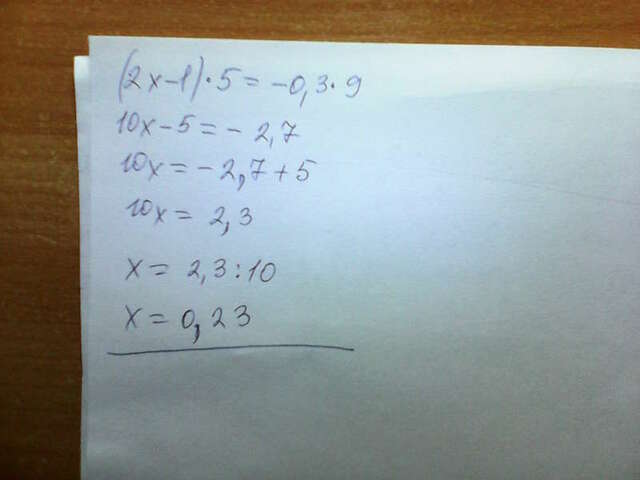 (2x-1)·5=-0,3·9
10x-5=-2,7
10x=-2,7+5
10x=2,3
x=2,3:10
x=0,23